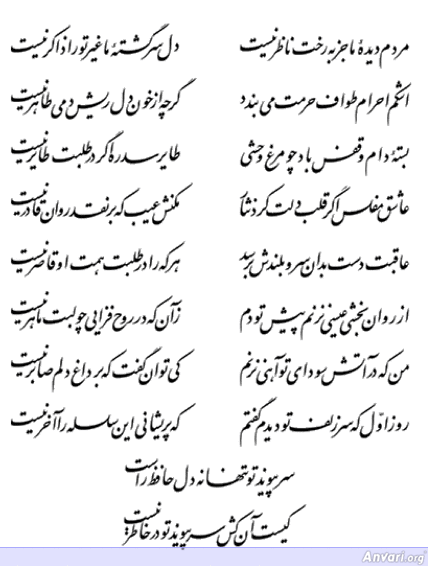 مردم دیدهٔ ما جز به رخت ناظر نیست دل سرگشتهٔ ما غیر تو را ذاکر نیست
اشکم احرام طواف حرمت می بندد گرچه از خون دل ریش دمی طاهر نیست
بستهٔ دام و قفس باد چو مرغ وحشی طایر سدره اگر در طلبت طایر نیست
عاشق مفلس اگر قلب دلت کرد نثار مکنش عیب که بر نقد روان قادر نیست
عاقبت دست بدان سرو بلندش برسد هر که را در طلبت همت او قاصر نیست
از روان بخشی عیسی نزنم پیش تو دم زآن که در روح فزایی چو لبت ماهر نیست
من که در آتش سودای تو آهی نزنم کی توان گفت که بر داغ دلم صابر نیست
روز اول که سر زلف تو دیدم گفتم که پریشانی این سلسله را آخر نیست
سر پیوند تو تنها نه دل حافظ راست
کیست آن کش سر پیوند تو در خاطر نیست
Anvari.org